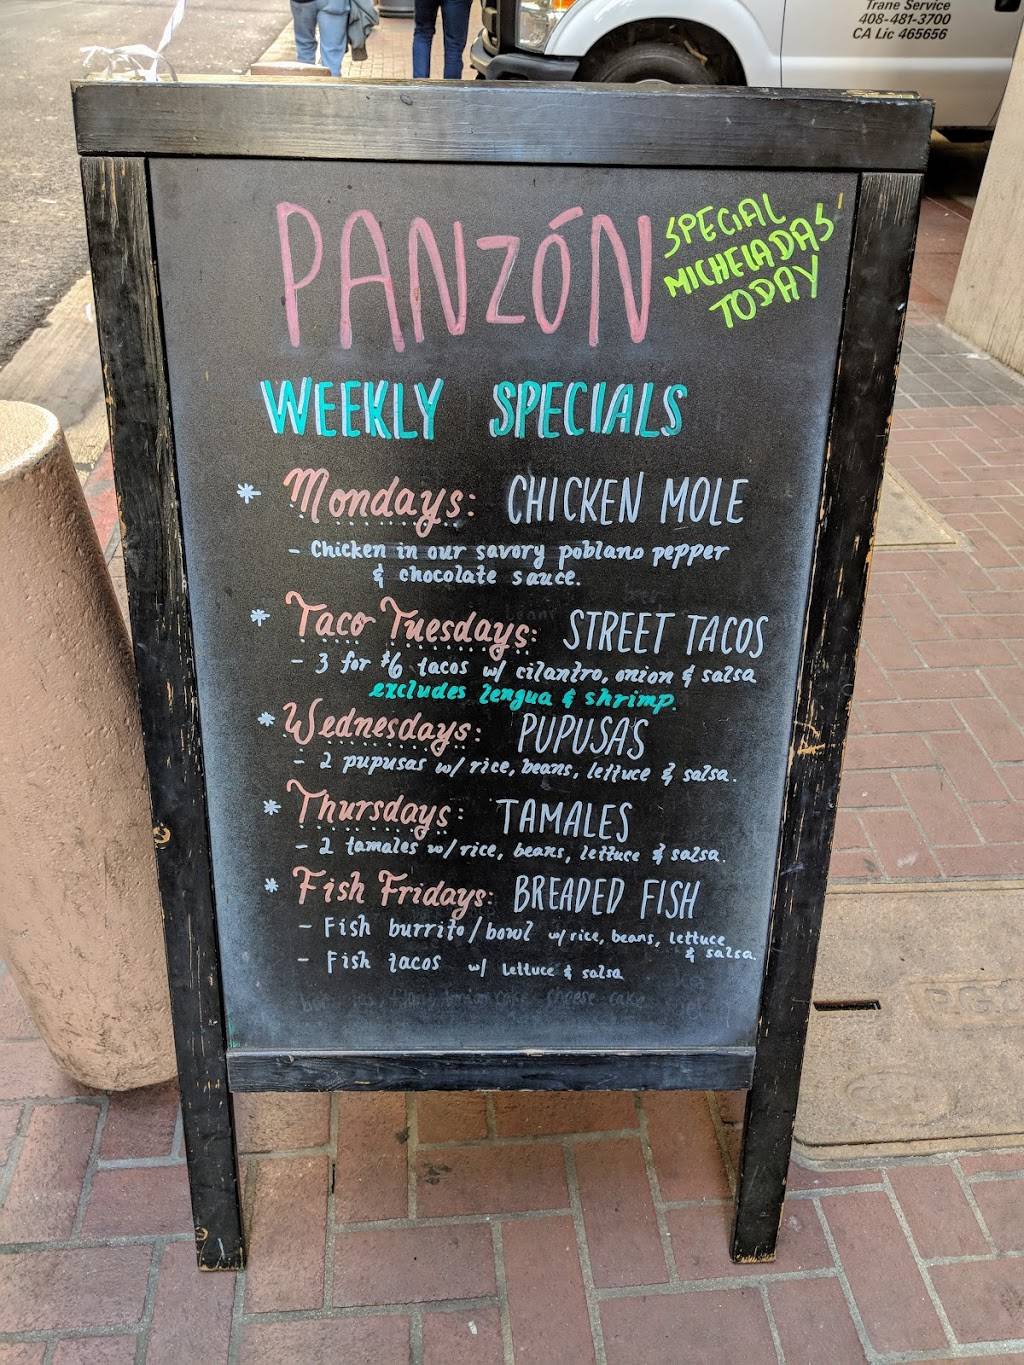 Trane Service
408-481-3700
CA Lic 465656
PANZÓN
SPECIAL
MICHELADAS
TODAY
WEEKLY SPECIALS
* Mondays: CHICKEN MOLE
- Chicken in our savory poblano pepper
& chocolate sauce.
* Taco Tuesdays: STREET TACOS
- 3 for $6 tacos w/ cilantro, onion & salsa
excludes lengua & shrimp.
* Wednesdays: PUPUSAS
- 2 pupusas w/ rice, beans, lettuce & salsa.
* Thursdays: TAMALES
- 2 tamales w/ rice, beans, lettuce & salsa.
* Fish Fridays: BREADED FISH
- Fish burrito/bowl w/ rice, beans, lettuce
& salsa.
- Fish tacos w/ lettuce & salsa